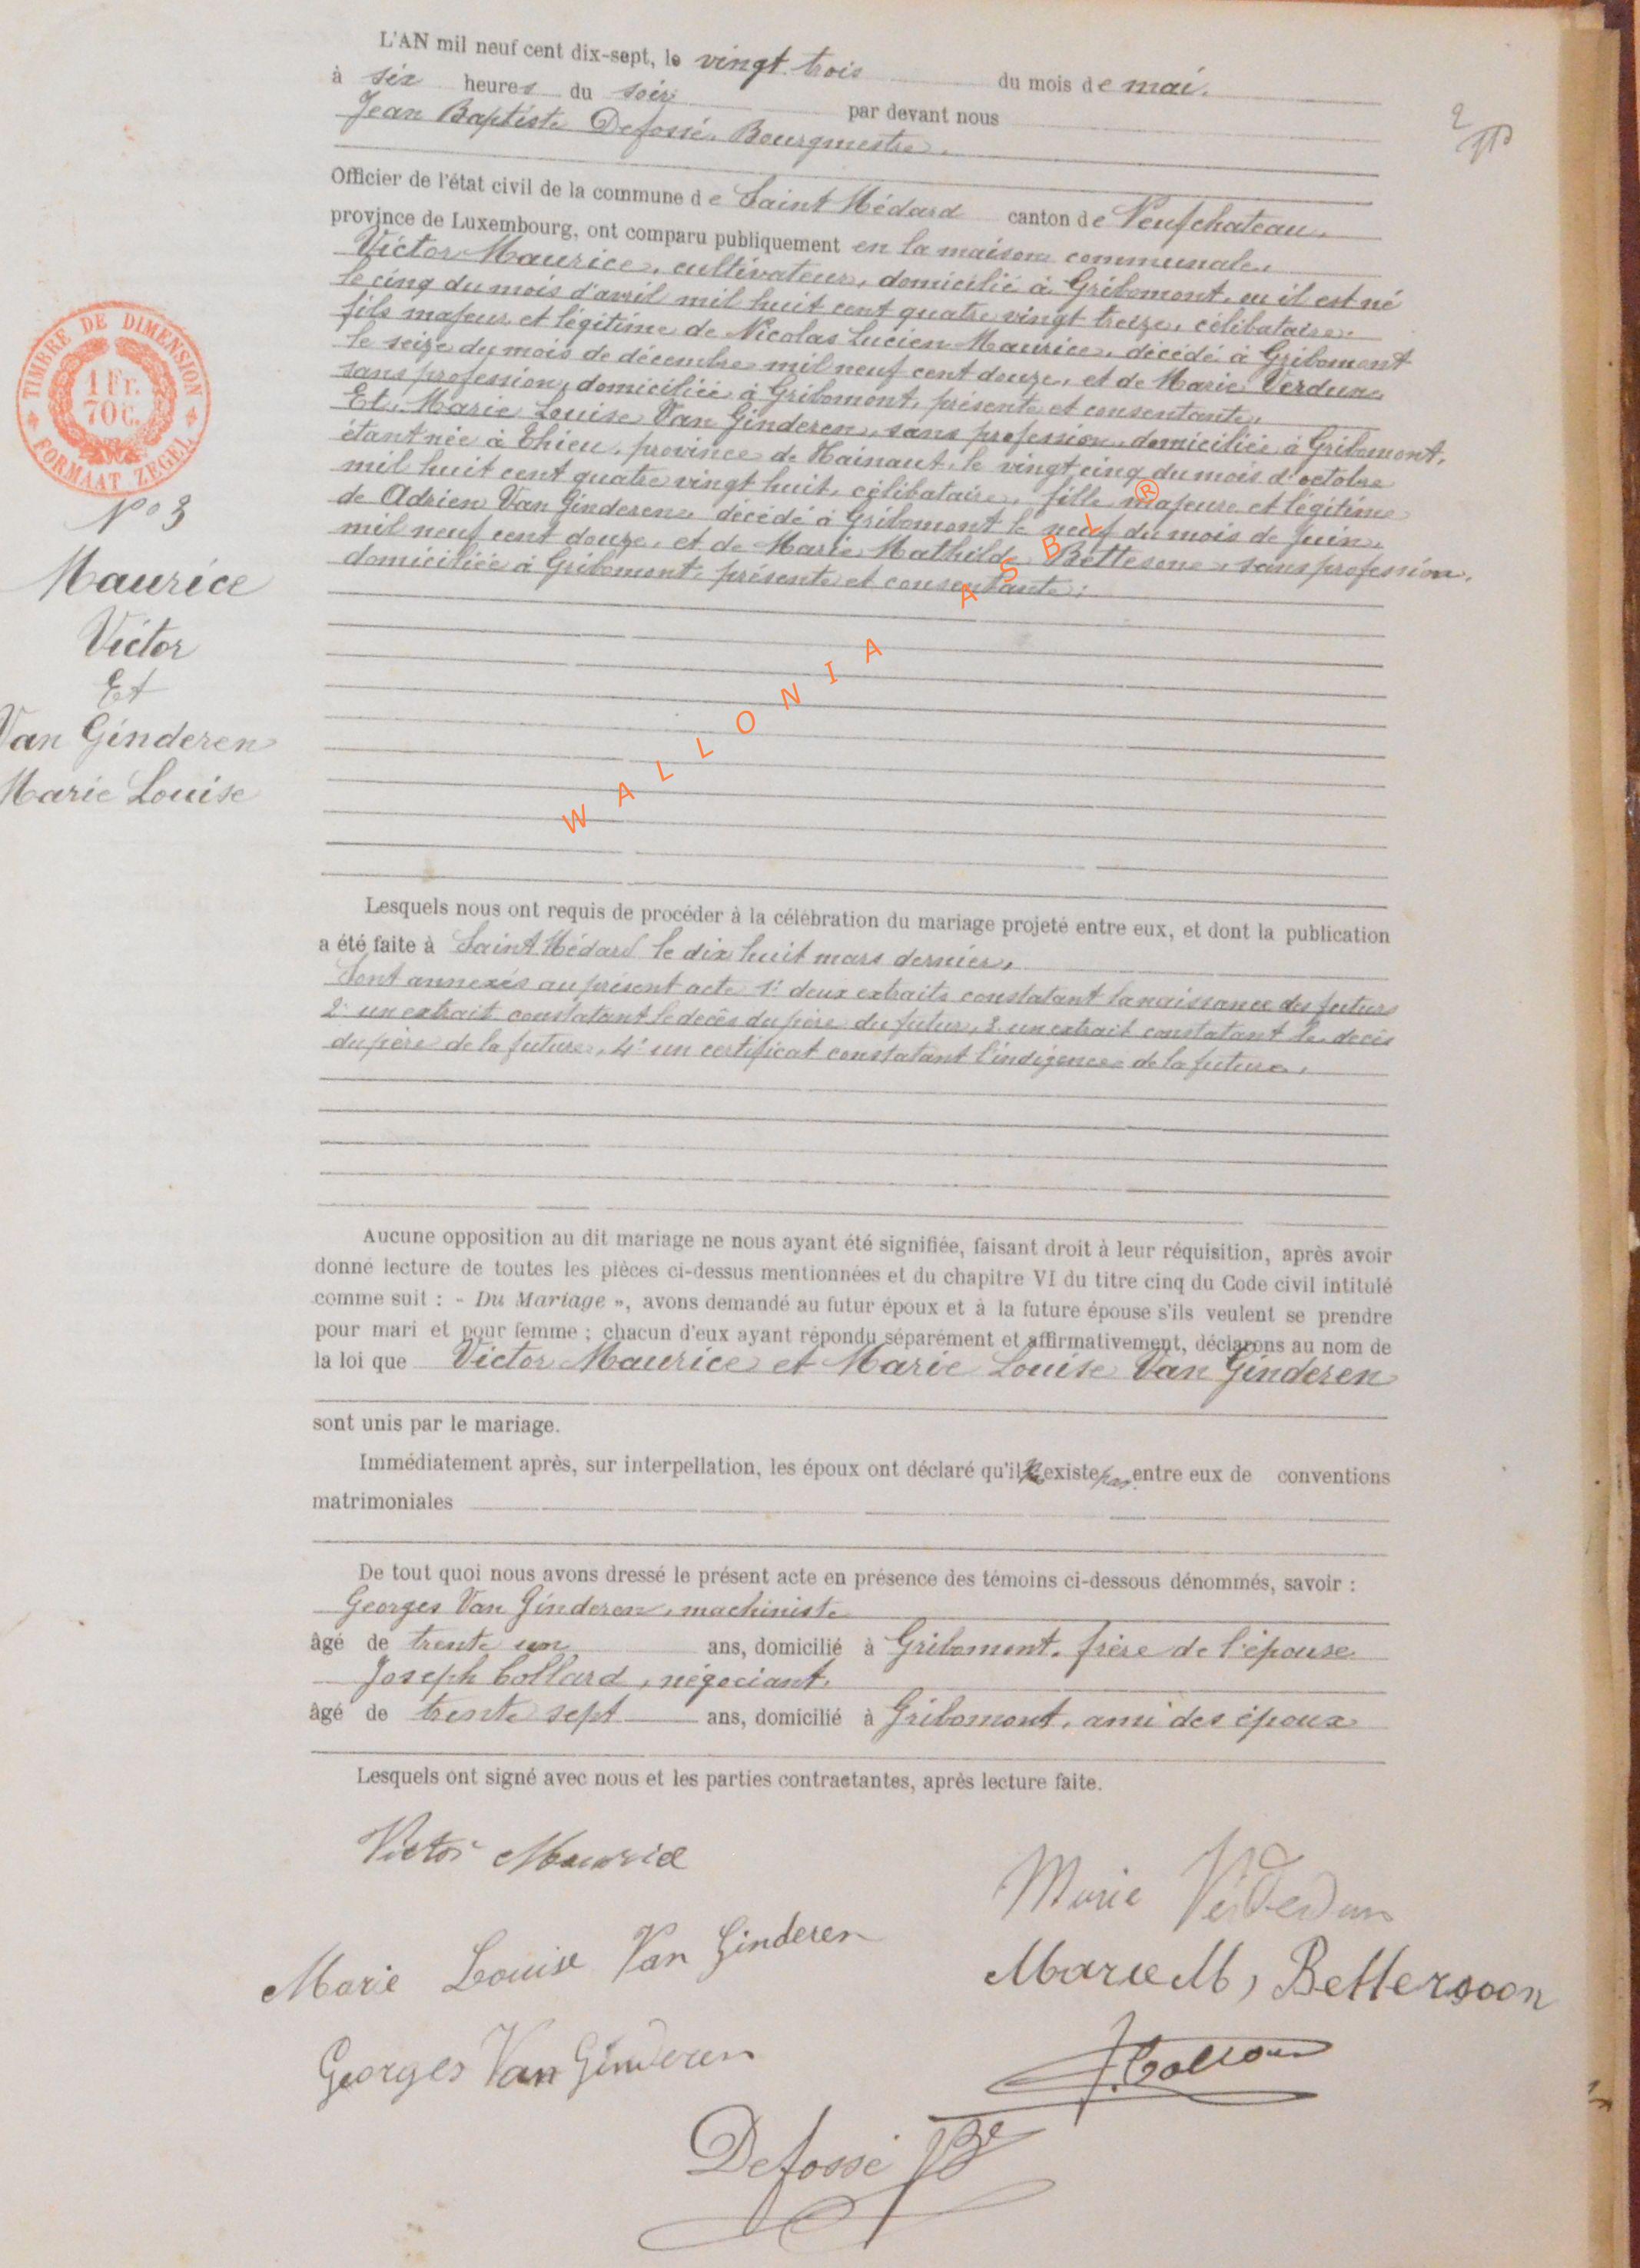 L'AN mil neuf cent dix-sept, le vingt trois du mois de mai.
à six heures du soir par devant nous
Jean Baptiste Defossé, Bourgmestre.
Officier de l'état civil de la commune de Saint Médard canton de Neufchateau,
province de Luxembourg, ont comparu publiquement en la maison communale,
Victor Maurice, cultivateur, domicilié à Gribomont, ou il est né
le cinq du mois d'avril mil huit cent quatre vingt treize, célibataire,
fils majeur et légitime de Nicolas Lucien Maurice, décédé à Gribomont
le seize du mois de décembre mil neuf cent douze, et de Marie Verdun,
sans profession, domiciliée à Gribomont, présente et consentante,
Et, Marie Louise Van Ginderen, sans profession, domiciliée à Gribomont,
étant née à Thieu, province de Hainaut, le vingt cinq du mois d'octobre
mil huit cent quatre vingt huit, célibataire, fille majeure et légitime
de Adrien Van Ginderen, décédé à Gribomont le neuf du mois de Juin,
mil neuf cent douze, et de Marie Mathilde Bettesone, sans profession,
domiciliée à Gribomont, présente et consentante;
TIMBRE DE DIMENSION
1 Fr.
70 C.
FORMAAT ZEGEL
N° 3
Maurice
Victor
Et
Van Ginderen
Marie Louise
WALLONIA ASBL ®
Lesquels nous ont requis de procéder à la célébration du mariage projeté entre eux, et dont la publication
a été faite à Saint Médard le dix huit mars dernier,
Sont annexés au présent acte 1° deux extraits constatant la naissance des futurs
2° un extrait constatant le decès du père du futur, 3° un extrait constatant le decès
du père de la future, 4° un certificat constatant l'indigence de la future,
Aucune opposition au dit mariage ne nous ayant été signifiée, faisant droit à leur réquisition, après avoir
donné lecture de toutes les pièces ci-dessus mentionnées et du chapitre VI du titre cinq du Code civil intitulé
comme suit : « Du Mariage », avons demandé au futur époux et à la future épouse s'ils veulent se prendre
pour mari et pour femme ; chacun d'eux ayant répondu séparément et affirmativement, déclarons au nom de
la loi que Victor Maurice et Marie Louise Van Ginderen
sont unis par le mariage.
Immédiatement après, sur interpellation, les époux ont déclaré qu'il n'existe pas entre eux de conventions
matrimoniales
De tout quoi nous avons dressé le présent acte en présence des témoins ci-dessous dénommés, savoir :
Georges Van Ginderen, machiniste
âgé de trente un ans, domicilié à Gribomont, frère de l'épouse
Joseph Collard, négociant,
âgé de trente sept ans, domicilié à Gribomont, ami des époux
Lesquels ont signé avec nous et les parties contractantes, après lecture faite.
Victor Maurice
Marie
Marie Louise Van Ginderen
Marie M, Bettersoon
Georges Van Ginderen
J. Collard
Defossé JB